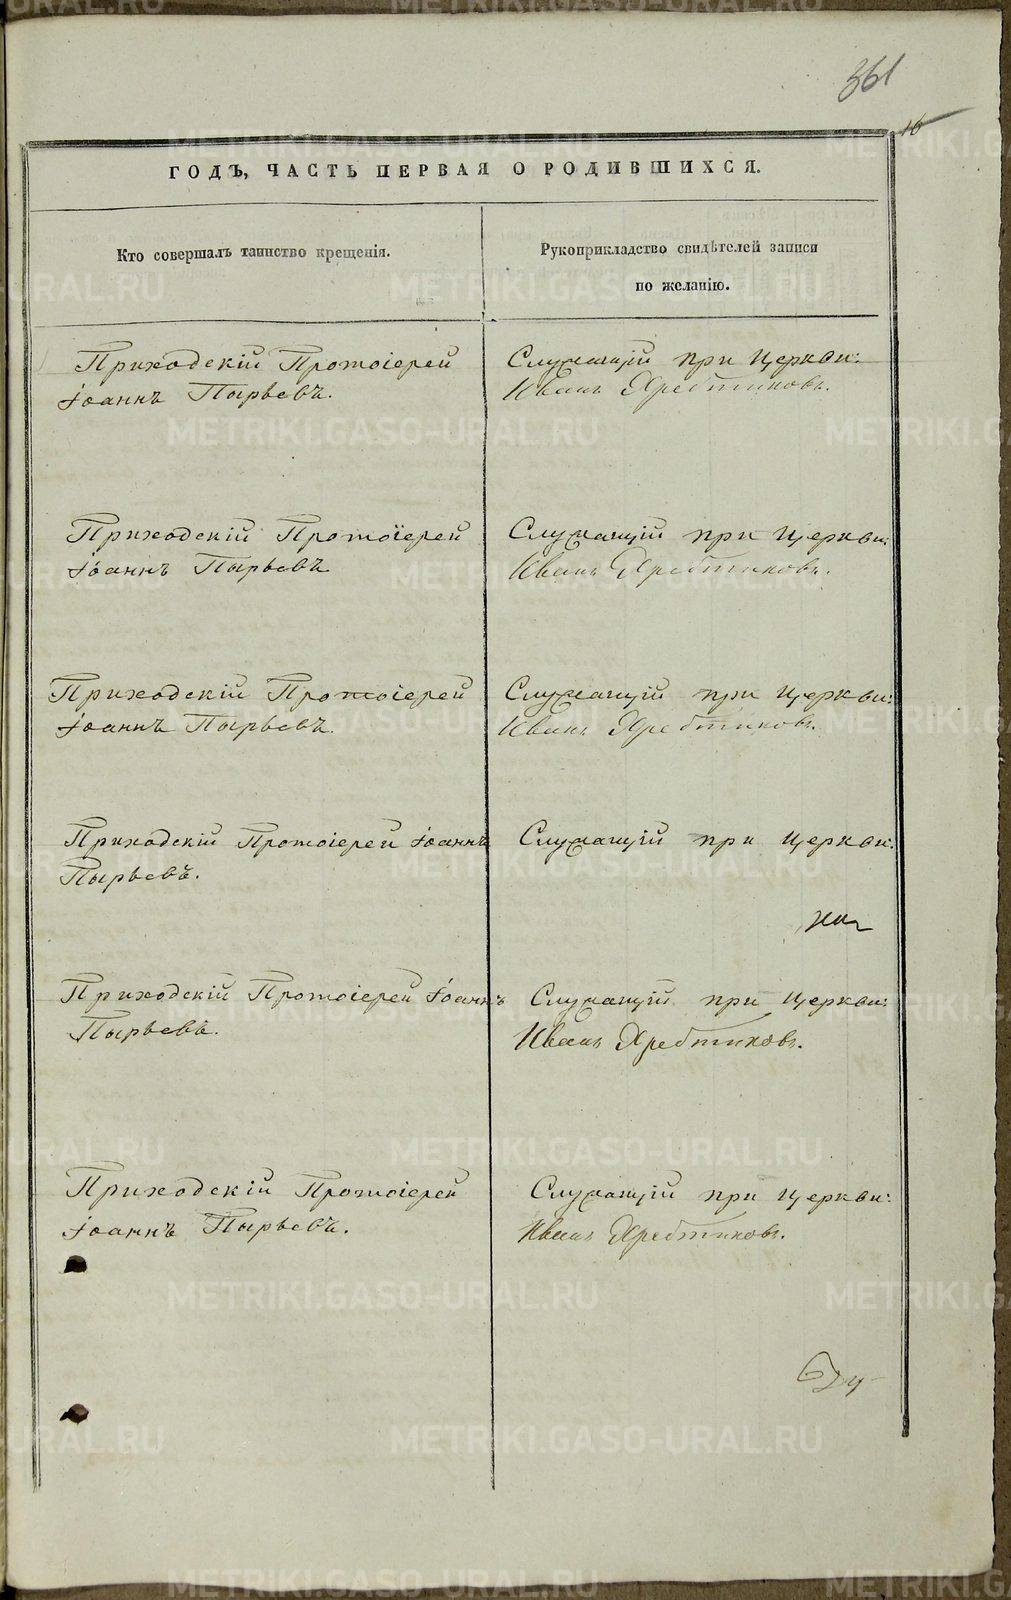 361
16
ГОДЪ, ЧАСТЬ ПЕРВАЯ О РОДИВШИХСЯ.
Кто совершалъ таинство крещенія.
Рукоприкладство свидѣтелей записи
по желанію.
Приходскій Протоіерей
Іоаннъ Пырьевъ.
Служащій при Церкви:
Иванъ Хребтиковъ.
Приходскій Протоіерей
Іоаннъ Пырьевъ
Служащій при Церкви:
Иванъ Хребтиковъ.
Приходскій Протоіерей
Іоаннъ Пырьевъ.
Служащій при Церкви:
Иванъ Хребтиковъ.
Приходскій Протоіерей Іоаннъ
Пырьевъ.
Служащій при Церкви:
Приходскій Протоіерей Іоаннъ
Пырьевъ.
Служащій при Церкви:
Иванъ Хребтиковъ.
Приходскій Протоіерей
Іоаннъ Пырьевъ.
Служащій при Церкви:
Иванъ Хребтиковъ.
METRIKI.GASO-URAL.RU